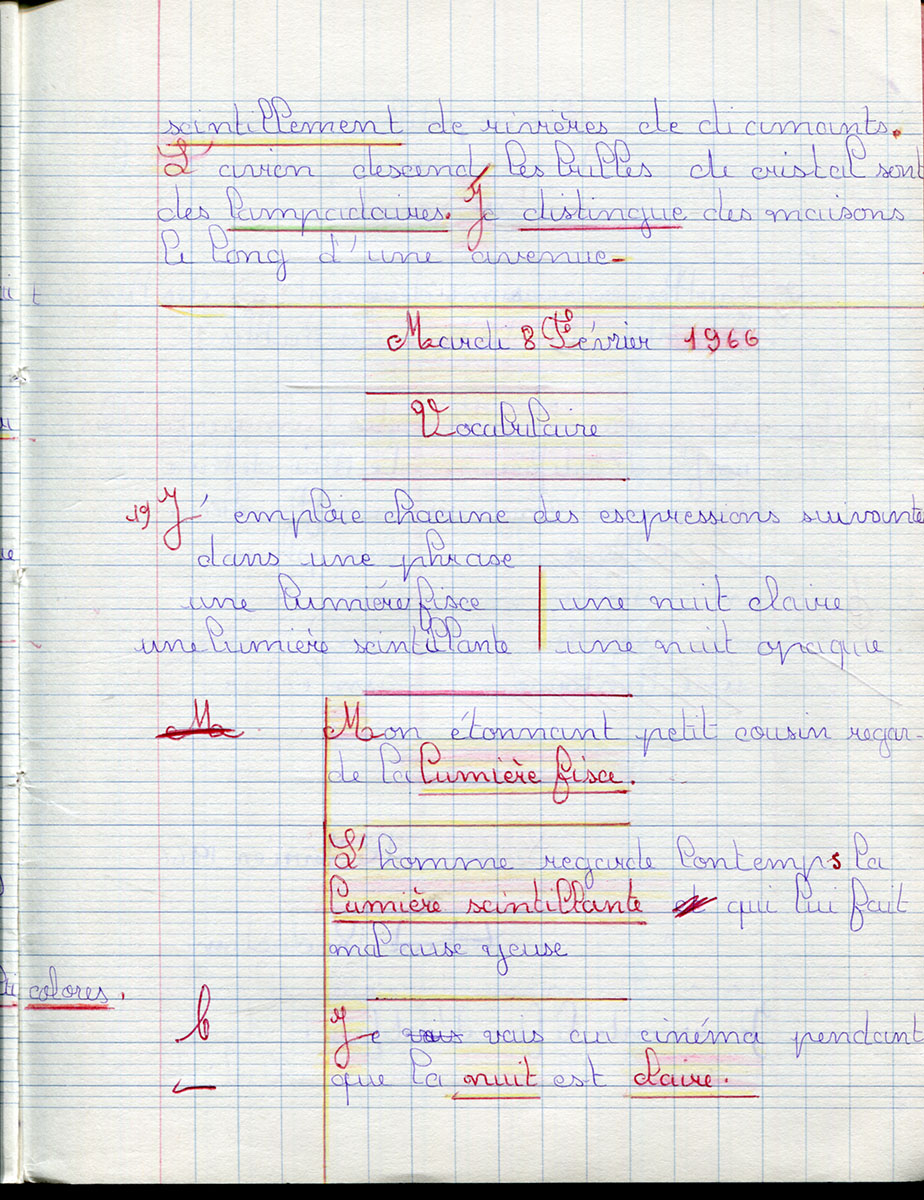 scintillement de rivières de diamants.
L'avion descend, les bulles de cristal sont
des lampadaires. Je distingue des maisons
le long d'une avenue.
Mardi 8 Février 1966
Vocabulaire
19 J'emploie chacune des expressions suivante
dans une phrase
une lumière fixe | une nuit claire
une lumière scintillante | une nuit opaque
Ma Mon étonnant petit cousin regar-
de la lumière fixe.
L'homme regarde lontemps la
lumière scintillante qui lui fait
mal aux yeux
colores.
b Je vais vais au cinéma pendant
que la nuit est claire.